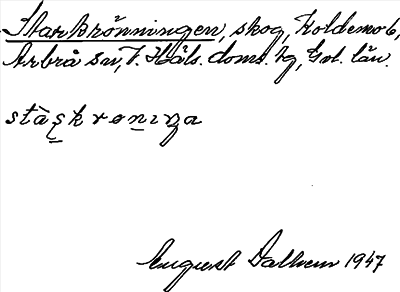 Starkrönningen, skog, Koldemo 6,
Arbrå sn, V. Häls. doms. hg, Gvl. län.
stàs̨krөniŋa
August Dalhem 1947